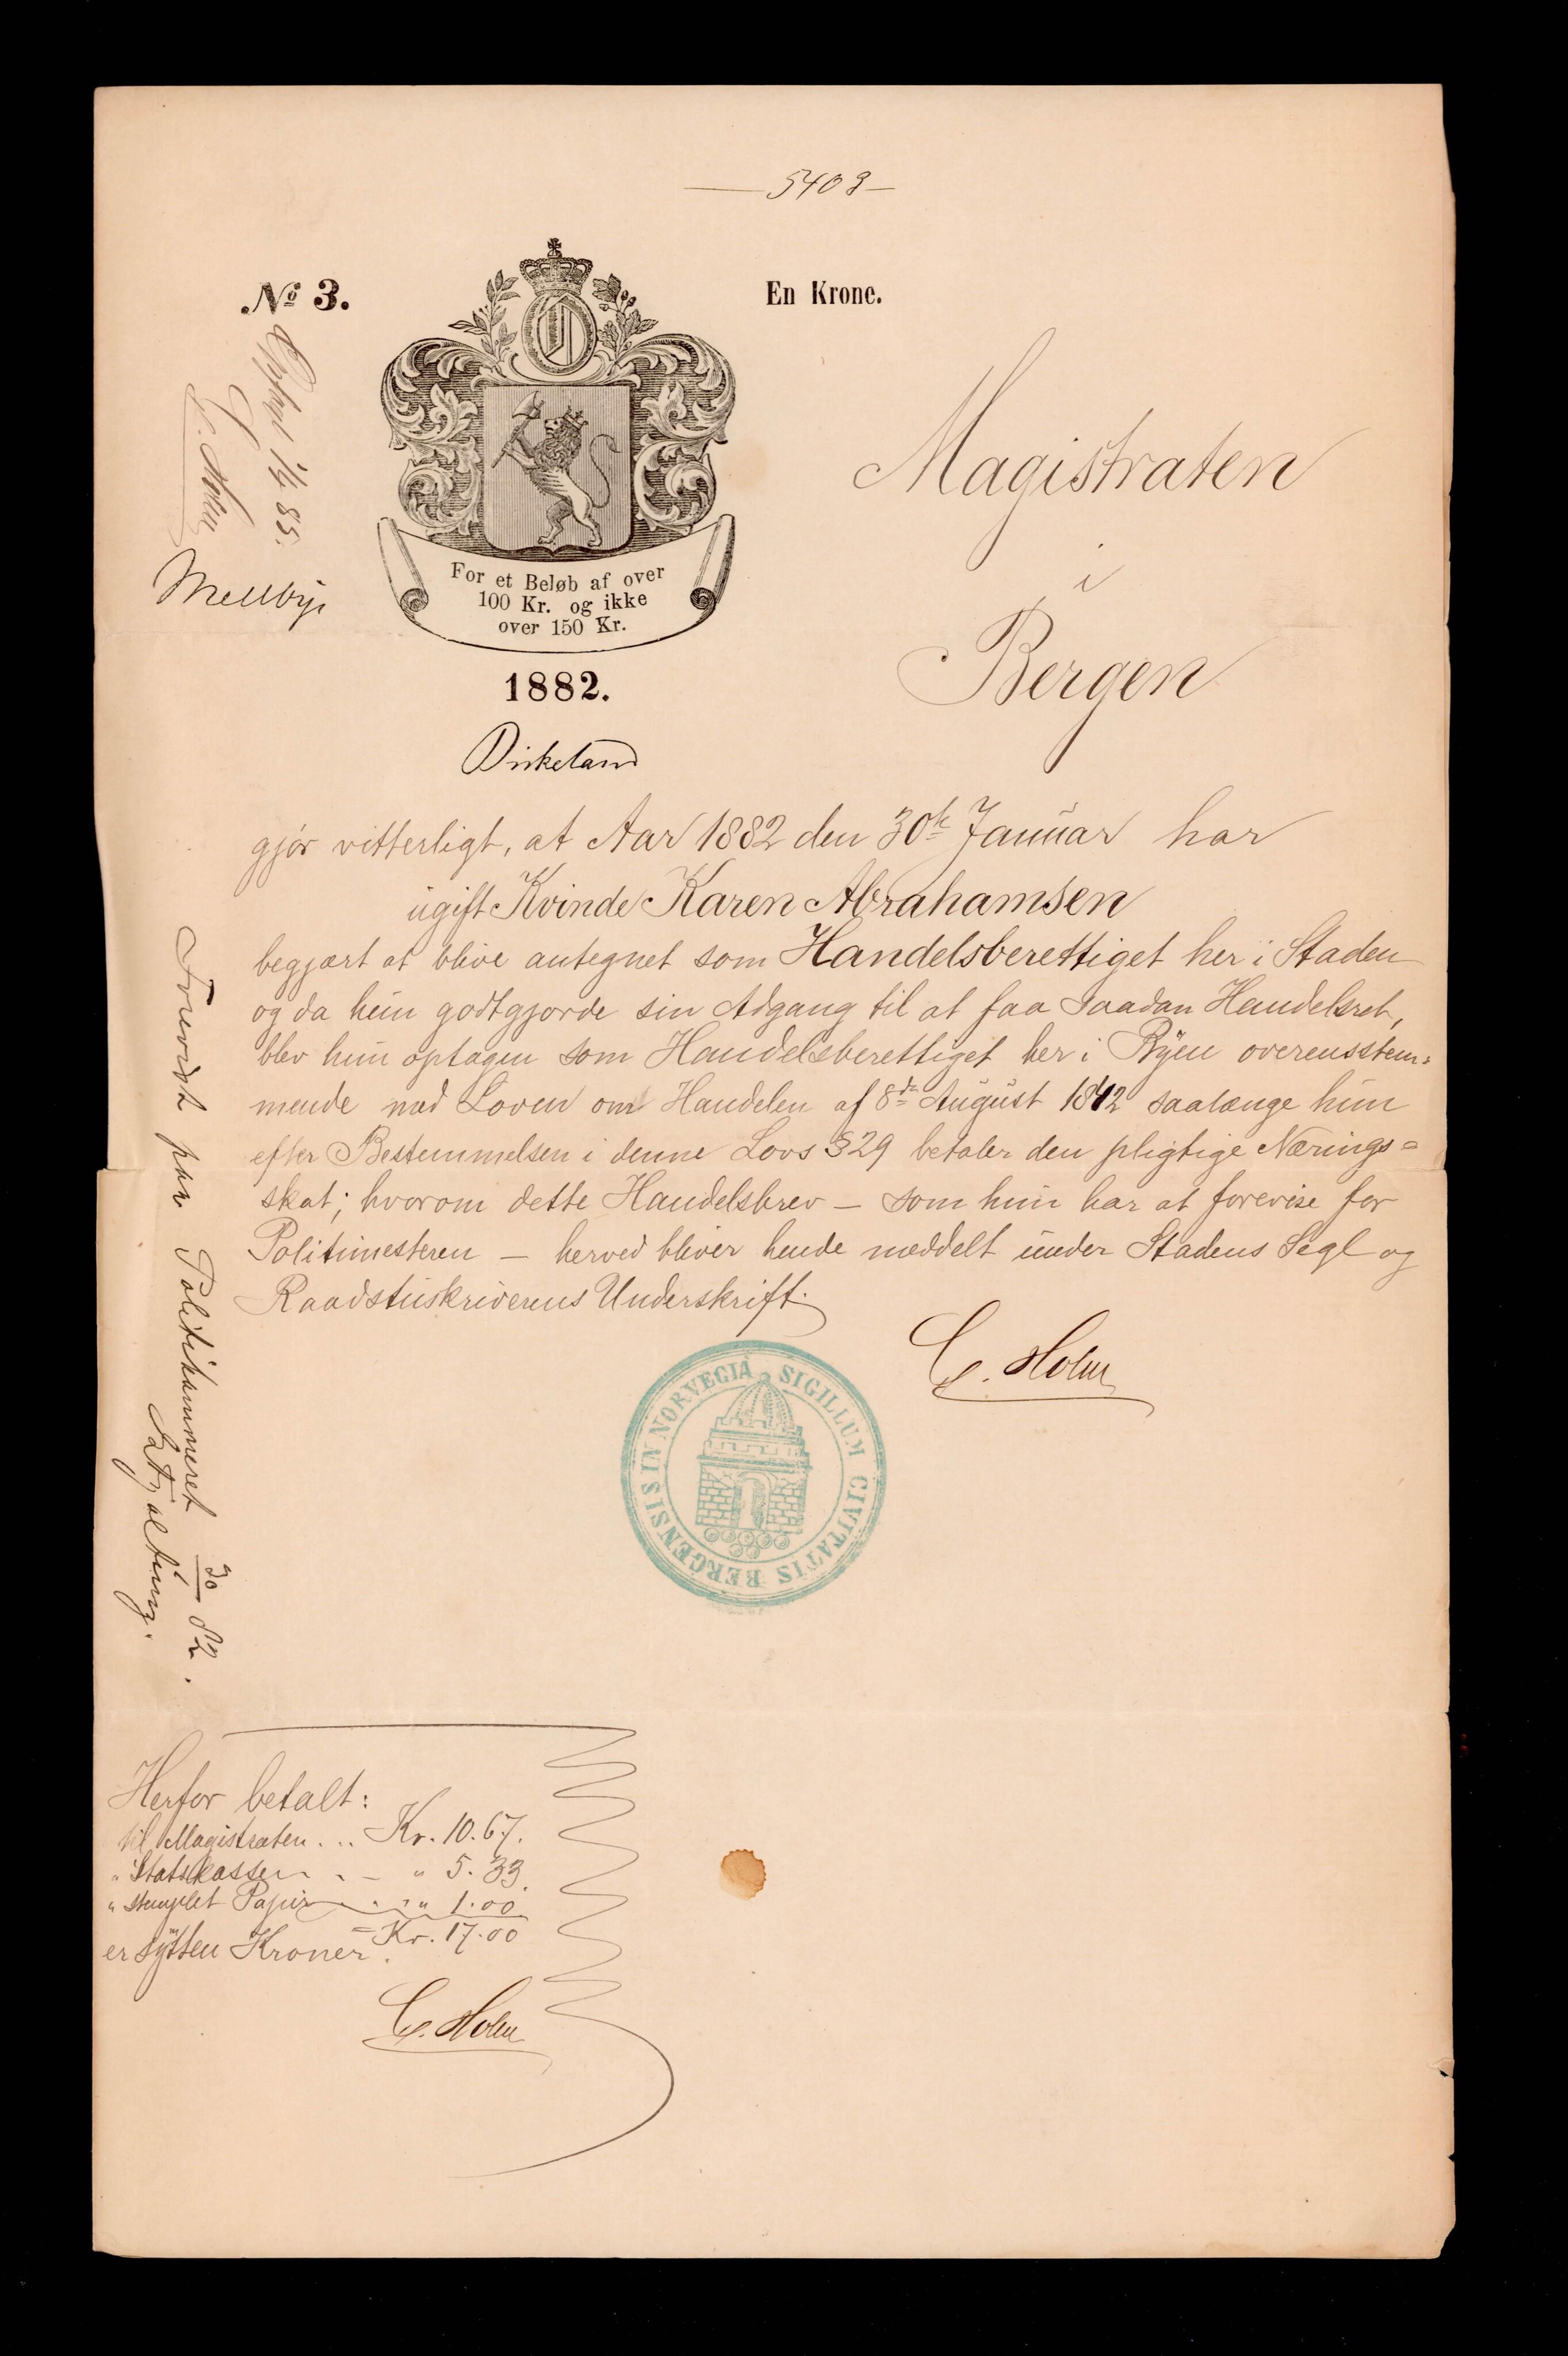 5403
No 3.
En Krone.
For et Beløb af over
100 Kr. og ikke
over 150 Kr.
1882.
Birkeland
Opsagt 1/4 85.
C. Holm
Mellbye
Magistraten
i
Bergen
gjør vitterligt, at Aar 1882 den 30te Januar har
ugift Kvinde Karen Abrahamsen
begjært at blive antegnet som Handelsberettiget her i Staden
og da hun godtgjorde sin Adgang til at faa saadan Handelsret,
blev hun optagen som Handelsberettiget her i Byen overensstem=
mende med Loven om Handelen af 8de August 1842 saalænge hun
efter Bestemmelsen i denne Lovs §29 betaler den pligtige Nærings=
skat; hvorom dette Handelsbrev — som hun har at forevise for
Politimesteren — herved bliver hende meddelt under Stadens Segl og
Raadstuskriverens Underskrift.
C. Holm
SIGILLUM CIVITATIS BERGENSIS IN NORVEGIA
Forevist paa Politikammeret 30/1 82.
Herfor betalt:
til Magistraten ... Kr. 10.67.
" Statskassen . — " 5.33.
" stemplet Papir . . . " 1.00
= Kr. 17.00
er sytten Kroner.
C. Holm